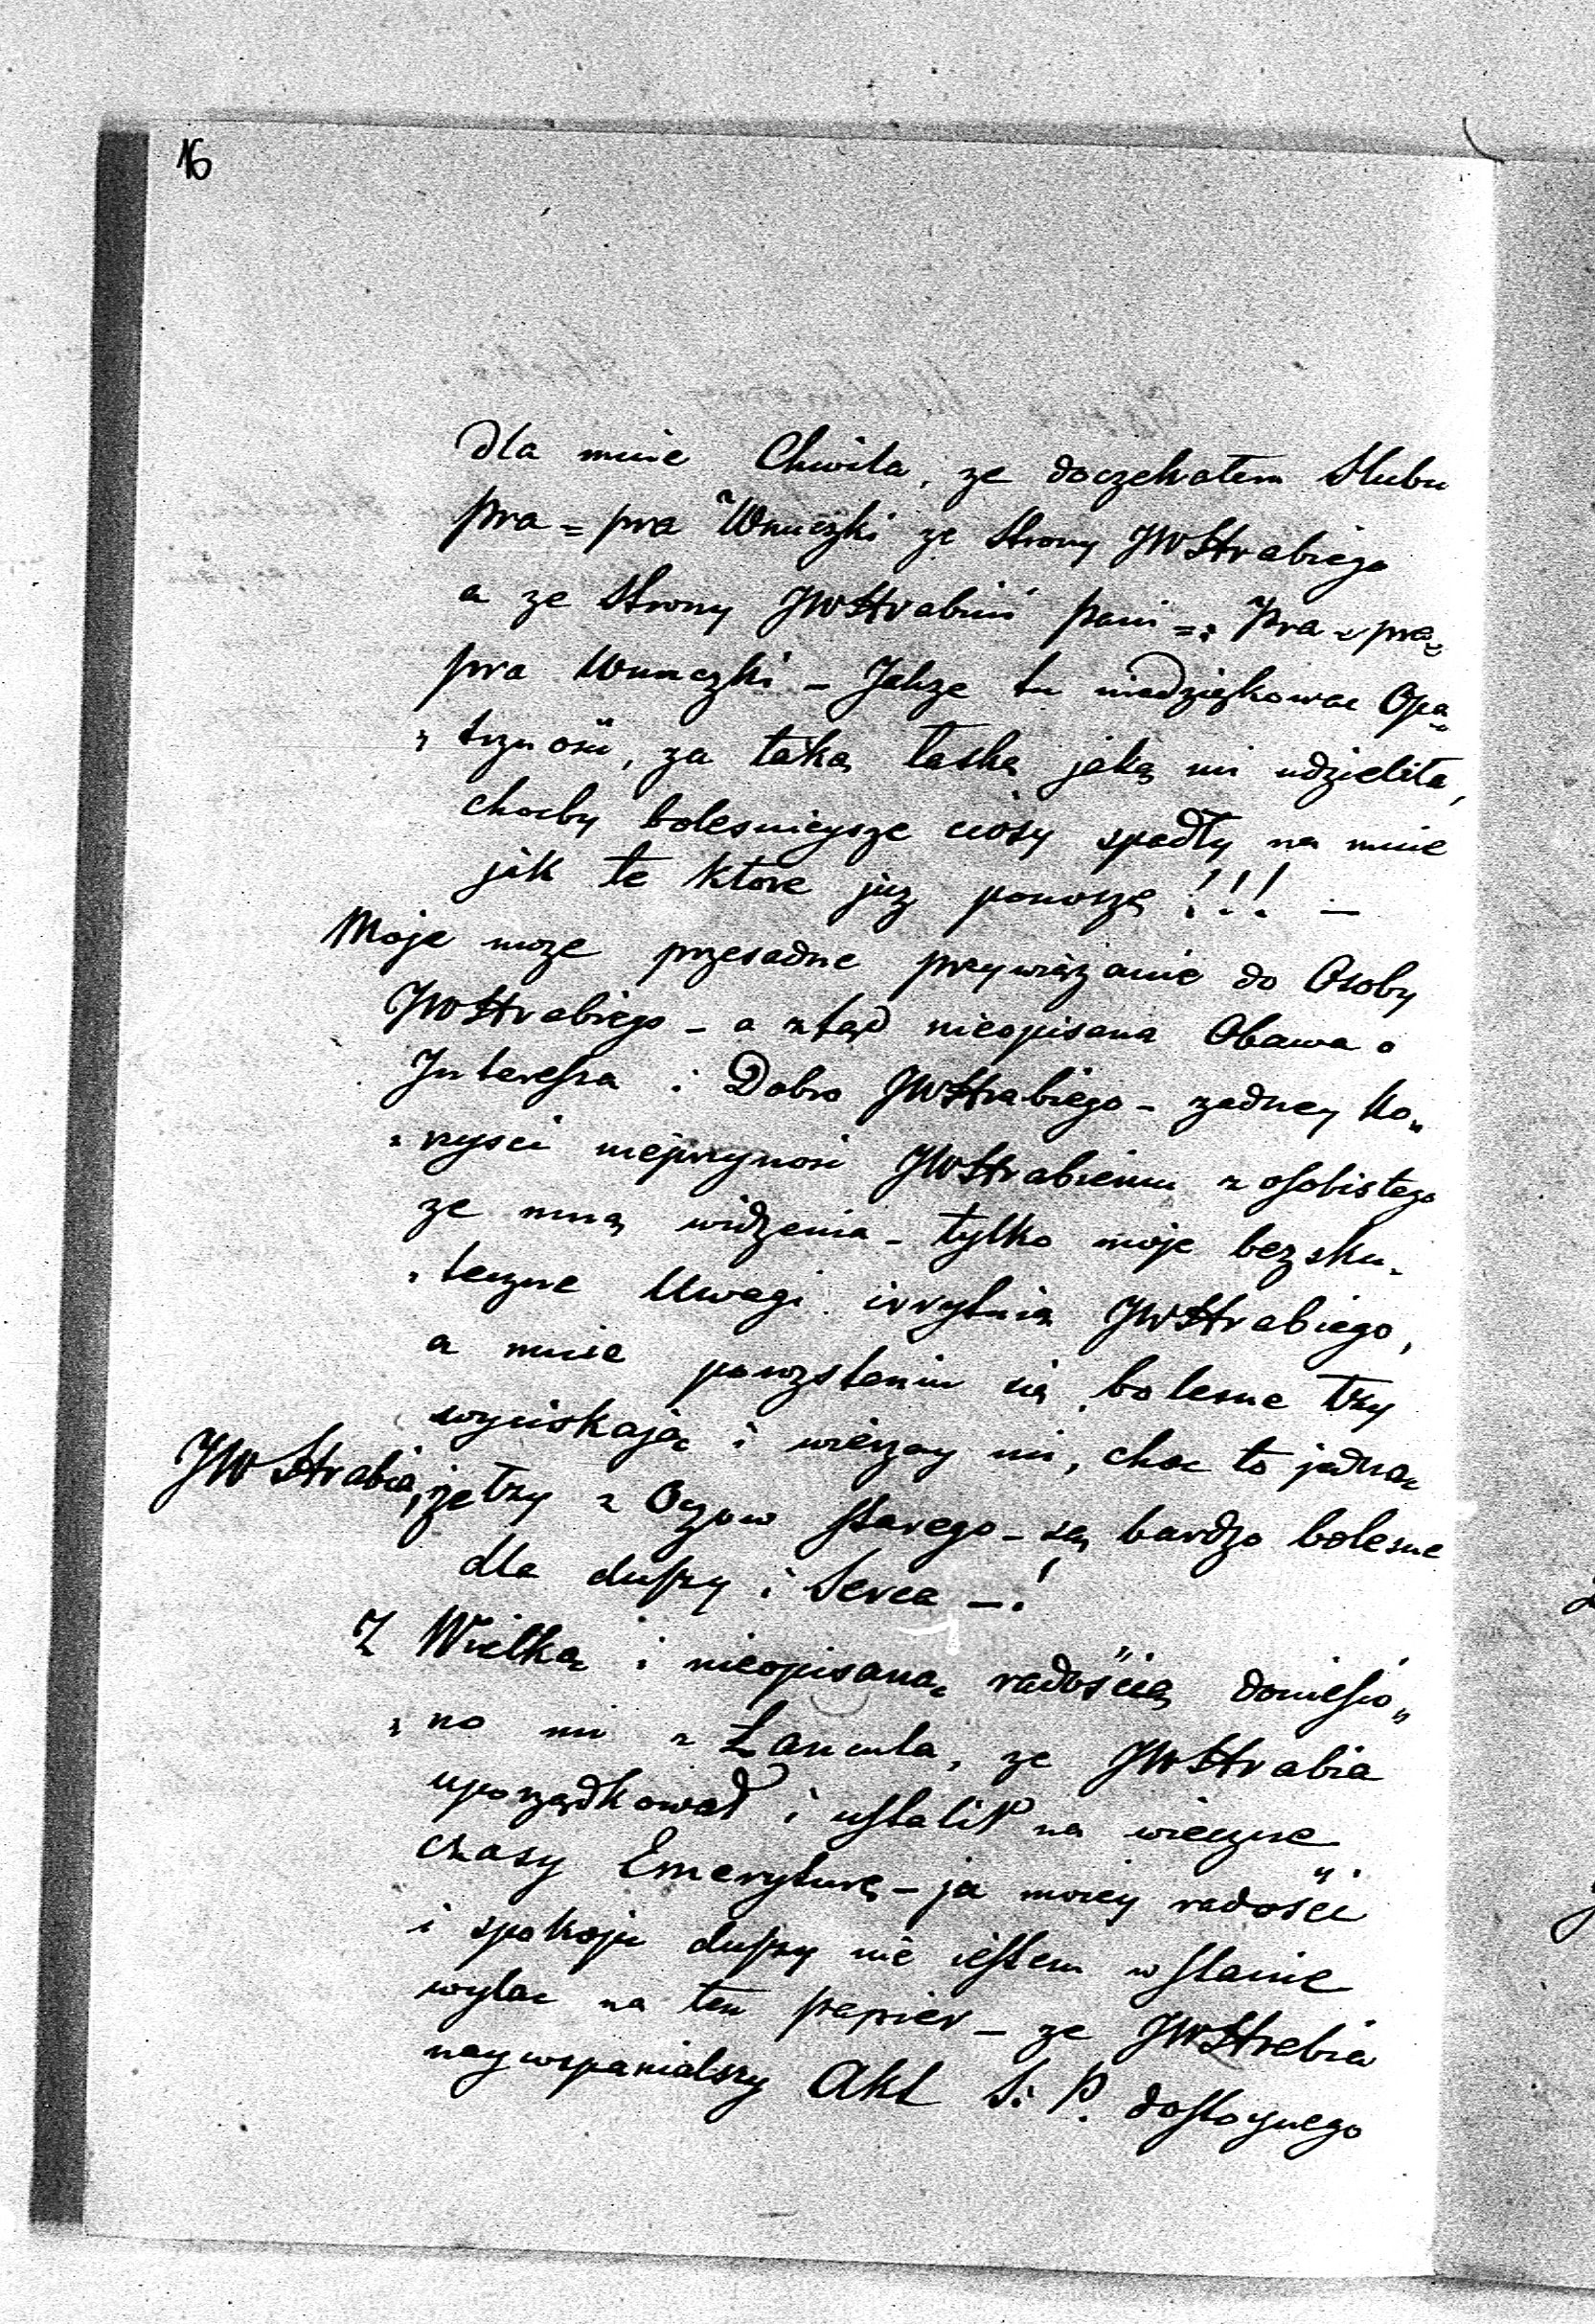 16
dla mnie Chwila, ze doczekałem Slubu
pra = pra Wnuczki ze Strony JWHrabiego
a ze Strony JWHrabini pani = Pra = pra
pra Wnuczki – Jakze tu niedziękowac Opa„
„trznosci, za taką łaskę jaką mi udzieliła,
chocby bolesnieysze ciosy spadły na mnie
jak te ktore juz ponoszę !!! –
Moje moze przesadne przywiązanie do Osoby
JWHrabiego – a ztąd nieopisana Obawa o
Interessa i Dobro JWHrabiego – zadney Ko„
„rzysci nieprzynosi JWHrabiemu z osobistego
ze mną widzenia – tylko moje bezsku„
„teczne Uwagi irrytuią JWHrabiego,
a mnie po rozstaniu się bolesne łzy
wyciskają i wierzay mi, choc to jedna
JWHrabia, ze łzy z Oczow starego – są bardzo bolesne
dla duszy i Serca – !
Z Wielką i nieopisaną radością doniesio„
„no mi z Łancuta, ze JWHrabia
uporządkował i ustalił na wieczne
czasy Emeryturę – ja moiey radości
i spokoju duszy nie iestem w stanie
wylac na ten papier – ze JWHrabia
naywspanialszy Akt S. P. dostoynego